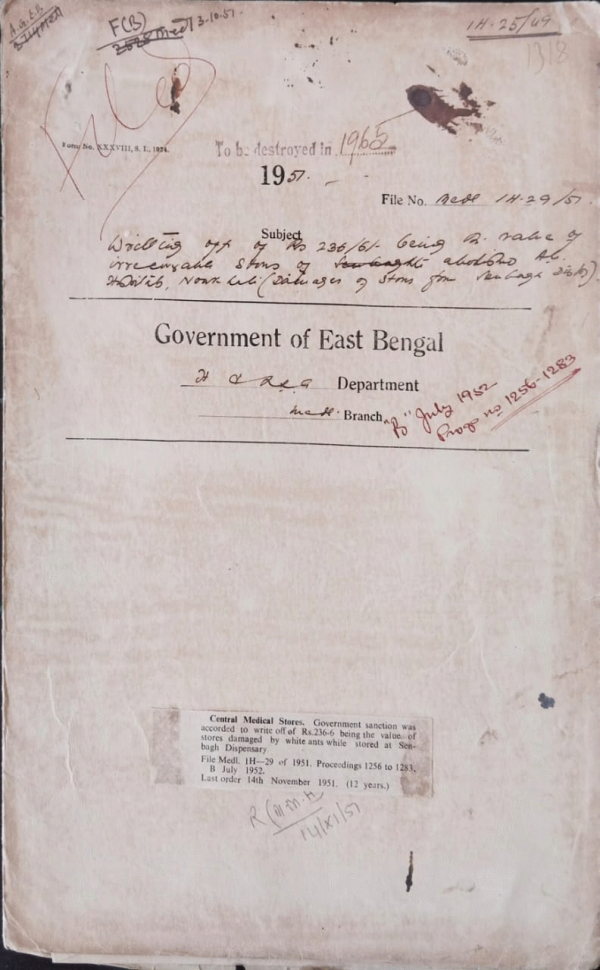 F(B)
3.10.51.
1H-25/49
1318
Filed
Form No. XXXVIII, S. I., 1924.
To be destroyed in 1965
1951.
File No. Medl 1H-29/51
Subject
Writing off of Rs 236/6/- being the value of
Stores of
Noakhali (Damages of Stores from Senbagh
Government of East Bengal
H & Department
Medl. Branch
"B" July 1952
Progs no 1256-1283
Central Medical Stores. Government sanction was
accorded to write off of Rs.236-6 being the value of
stores damaged by white ants while stored at Sen-
bagh Dispensary
File Medl. 1H—29 of 1951. Proceedings 1256 to 1283,
B July 1952.
Last order 14th November 1951. (12 years.)
14/XI/51